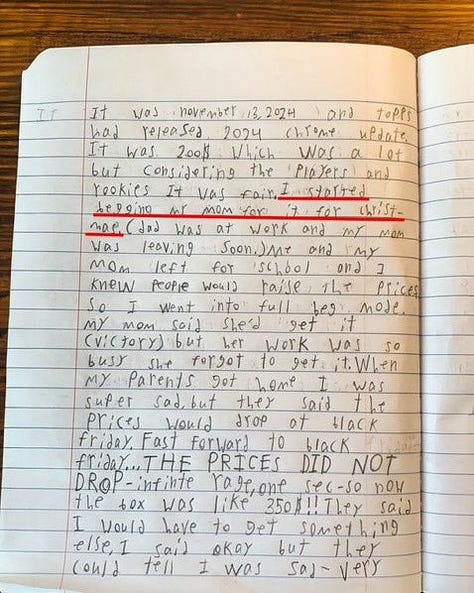 It It was november 13, 2024 and topps
had released 2024 chrome update.
It was 200$ Which was a lot
but considering the Players and
rookies It was fair. I started
begging my mom for it for christ-
mas. (dad was at work and my mom
was leaving soon.) Me and my
mom left for school and I
knew people would raise the prices
So I went into full beg mode.
my mom said she'd get it
(victory) but her work was so
busy she forgot to get it. When
my parents got home I was
super sad, but they said the
prices would drop at black
friday. Fast forward to black
friday... THE PRICES DID NOT
DROP-infinite rage, one sec-so now
the box was like 350$!! They said
I would have to get something
else, I said okay but they
could tell I was sad- very